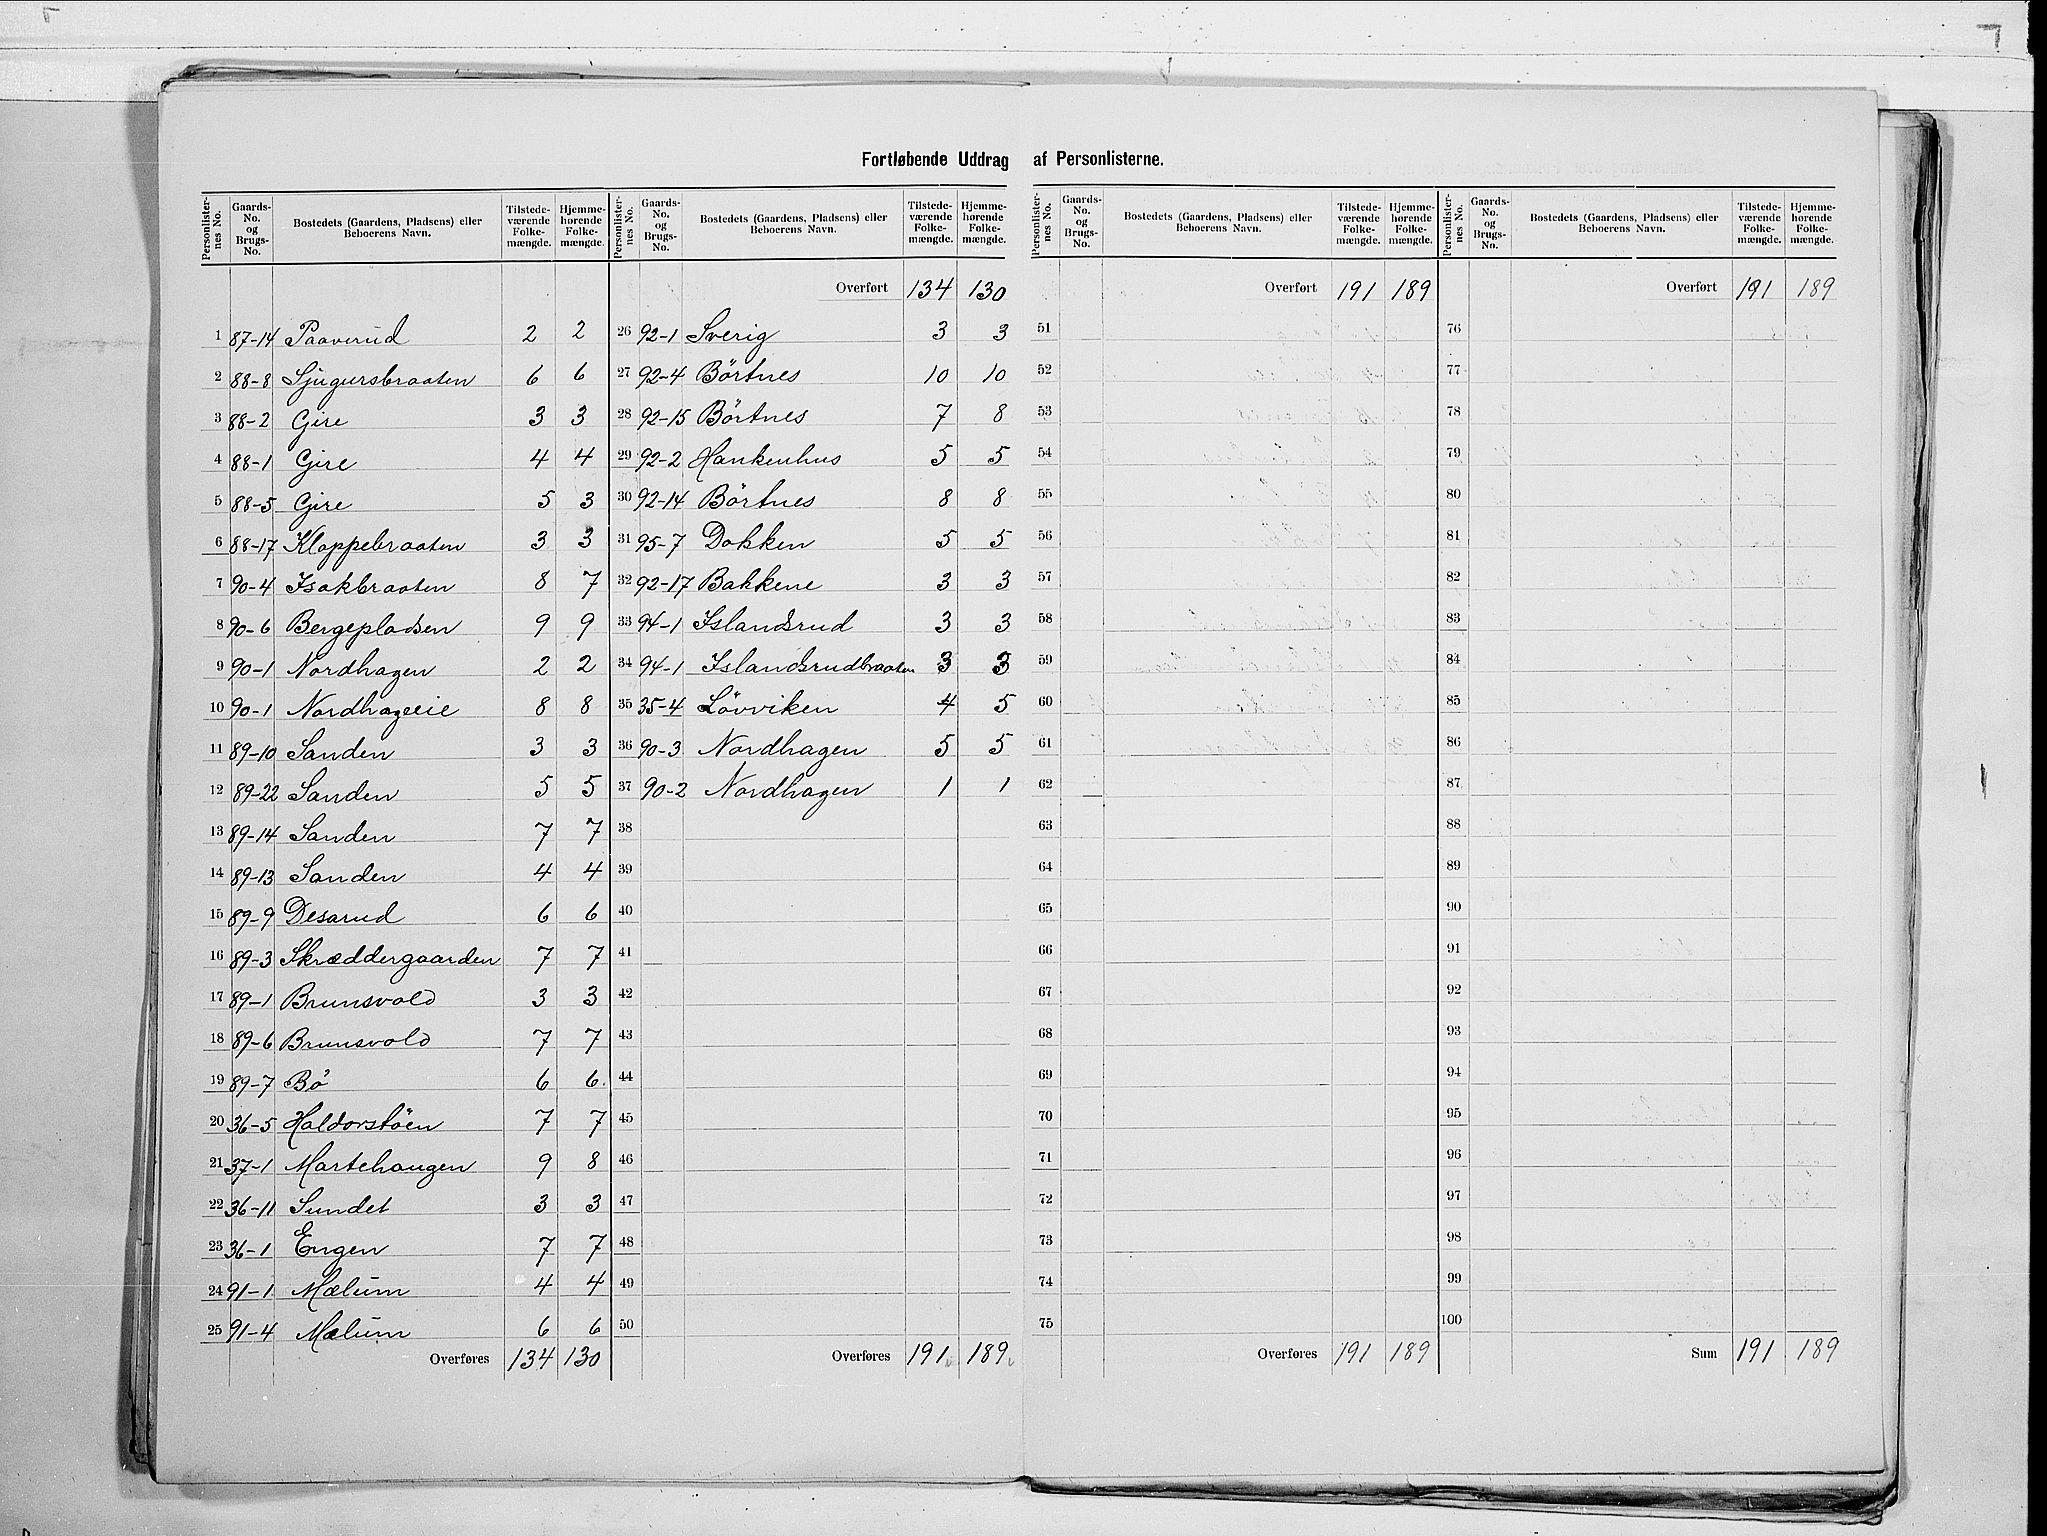 Fortløbende Uddrag af Personlisterne.
Personlisternes No. Gaards-No. og Brugs-No. Bostedets (Gaardens, Pladsens) eller Beboerens Navn. Tilstedeværende Folkemængde. Hjemmehørende Folkemængde.
1 87-14 Paaverud 2 2
2 88-8 Sjugursbraaten 6 6
3 88-2 Gire 3 3
4 88-1 Gire 4 4
5 88-5 Gire 5 3
6 88-17 Kloppebraaten 3 3
7 90-4 Isakbraaten 8 7
8 90-6 Bergepladsen 9 9
9 90-1 Nordhagen 2 2
10 90-1 Nordhageeie 8 8
11 89-10 Sanden 3 3
12 89-22 Sanden 5 5
13 89-14 Sanden 7 7
14 89-13 Sanden 4 4
15 89-9 Desarud 6 6
16 89-3 Skræddergaarden 7 7
17 89-1 Brunsvold 3 3
18 89-6 Brunsvold 7 7
19 89-7 Bö 6 6
20 36-5 Haldorstöen 7 7
21 37-1 Martehaugen 9 8
22 36-11 Sundet 3 3
23 36-1 Engen 7 7
24 91-1 Mælum 4 4
25 91-4 Mælum 6 6
Overføres 134 130
Personlisternes No. Gaards-No. og Brugs-No. Bostedets (Gaardens, Pladsens) eller Beboerens Navn. Tilstedeværende Folkemængde. Hjemmehørende Folkemængde.
Overført 134 130
26 92-1 Sverig 3 3
27 92-4 Börtnes 10 10
28 92-15 Börtnes 7 8
29 92-2 Hankenhus 5 5
30 92-14 Börtnes 8 8
31 95-7 Dokken 5 5
32 92-17 Bakkene 3 3
33 94-1 Islandsrud 3 3
34 94-1 Islandsrudbraaten 3 3
35 35-4 Lövviken 4 5
36 90-3 Nordhagen 5 5
37 90-2 Nordhagen 1 1
38
39
40
41
42
43
44
45
46
47
48
49
50
Overføres 191 189
Personlisternes No. Gaards-No. og Brugs-No. Bostedets (Gaardens, Pladsens) eller Beboerens Navn. Tilstedeværende Folkemængde. Hjemmehørende Folkemængde.
Overført 191 189
51
52
53
54
55
56
57
58
59
60
61
62
63
64
65
66
67
68
69
70
71
72
73
74
75
Overføres 191 189
Personlisternes No. Gaards-No. og Brugs-No. Bostedets (Gaardens, Pladsens) eller Beboerens Navn. Tilstedeværende Folkemængde. Hjemmehørende Folkemængde.
Overført 191 189
76
77
78
79
80
81
82
83
84
85
86
87
88
89
90
91
92
93
94
95
96
97
98
99
100
Sum 191 189